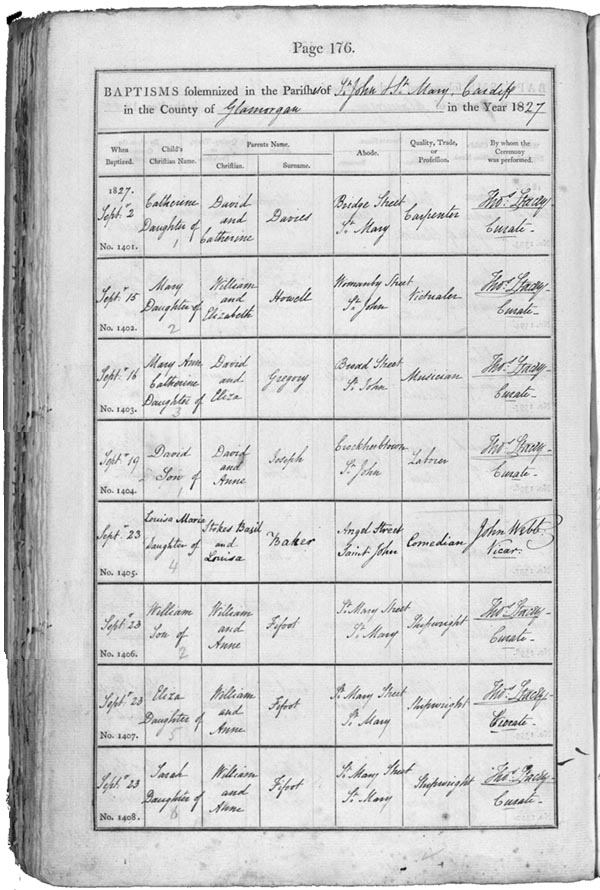 Page 176.
BAPTISMS solemnized in the Parishes of St. John & St. Mary, Cardiff
in the County of Glamorgan in the Year 1827
When Baptized. Child's Christian Name. Parents Name. Christian. Surname. Abode. Quality, Trade, or Profession. By whom the Ceremony was performed.
1827.
Septr. 2 Catherine Daughter of David and Catherine Davies Bridge Street St. Mary Carpenter Thos. Stacey Curate
1
No. 1401.
Septr. 15 Mary Daughter of William and Elizabeth Howell Womanby Street St. John Victualer Thos. Stacey Curate
2
No. 1402.
Septr. 16 Mary Ann Catherine Daughter of David and Eliza Gregory Broad Street St. John Musician Thos. Stacey Curate
3
No. 1403.
Septr. 19 David Son of David and Anne Joseph Crockherbtown St. John Laborer Thos. Stacey Curate
1
No. 1404.
Septr. 23 Louisa Maria Daughter of Stokes Basil and Louisa Baker Angel Street Saint John Comedian John Webb Vicar.
4
No. 1405.
Septr. 23 William Son of William and Anne Fifoot St. Mary Street St. Mary Shipwright Thos. Stacey Curate
2
No. 1406.
Septr. 23 Eliza Daughter of William and Anne Fifoot St. Mary Street St. Mary Shipwright Thos. Stacey Curate
5
No. 1407.
Septr. 23 Sarah Daughter of William and Anne Fifoot St. Mary Street St. Mary Shipwright Thos. Stacey Curate
6
No. 1408.